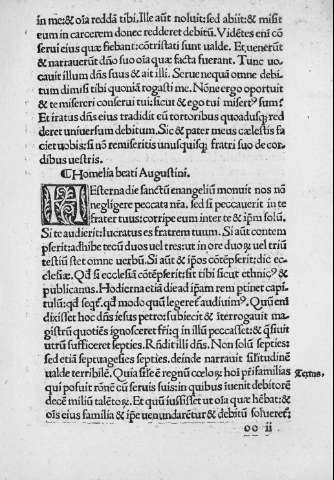 in me: & oı̃a reddã tibi. Ille aũt noluit: sed abiit: & misit
eum in carcerem donec redderet debitũ. Vidẽtes eni cõ
serui eius quæ fiebant: cõtristati sunt ualde. Et uenerũt
& narrauerũt dño suo oı̃a quæ facta fuerant. Tunc uo,
cauit illum dñs suus & ait illi. Serue nequã omne debi,
tum dimisi tibi quoniã rogasti me. Nõne ergo oportuit
& te misereri conserui tui: sicut & ego tui misertꝰ sum?
Et iratus dñs eius tradidit eũ tortoribus quoadusqꝫ red
deret uniuersum debitum. Sic & pater meus cælestis fa
ciet uobis: si nõ remiseritis unusquisqꝫ fratri suo de cor,
dibus uestris.
¶ Homelia beati Augustini.
HEsterna die sanctũ euangeliũ monuit nos nõ
negligere peccata nr̃a. sed si peccauerit in te
frater tuus: corripe eum inter te & ip̃m solũ.
Si te audierit: lucratus es fratrem tuum. Si aũt contem
pserit: adhibe tecũ duos uel tres: ut in ore duoꝝ uel triũ
testiũ stet omne uerbũ. Si aũt & ip̃os cõtẽpserit: dic ec,
clesiæ. Qđ si ecclesiã cõtẽpserit: sit tibi sicut ethnicꝰ &
publicanus. Hodierna etiã die ad ip̃am rem ꝑtinet capi,
tulũ: qđ seqr̃. qđ modo quũ legeret̃ audiuimꝰ. Quũ em̃
dixisset hoc dñs iesus petro: subiecit & ĩterrogauit ma,
gistrũ quotiẽs ignosceret fr̃i: q in illũ peccasset: & q̃siuit
utrũ sufficeret septies. Rñdit illi dñs. Non solũ septies:
sed etiã septuagesies septies. deinde narrauit siłitudinẽ
ualde terribilẽ. Quia siłe ẽ regnũ cœloꝝ hoı̃ pr̃ifamilias
Textus.
qui posuit rõnẽ cũ seruis suis: in quibus ĩuenit debitorẽ
decẽ miliũ talẽtoꝝ. Et quũ iussisset ut oı̃a quæ hẽbat: &
oı̃s eius familia & ip̃e uenundaret̃ur & debitũ solueret̃:
oo ii